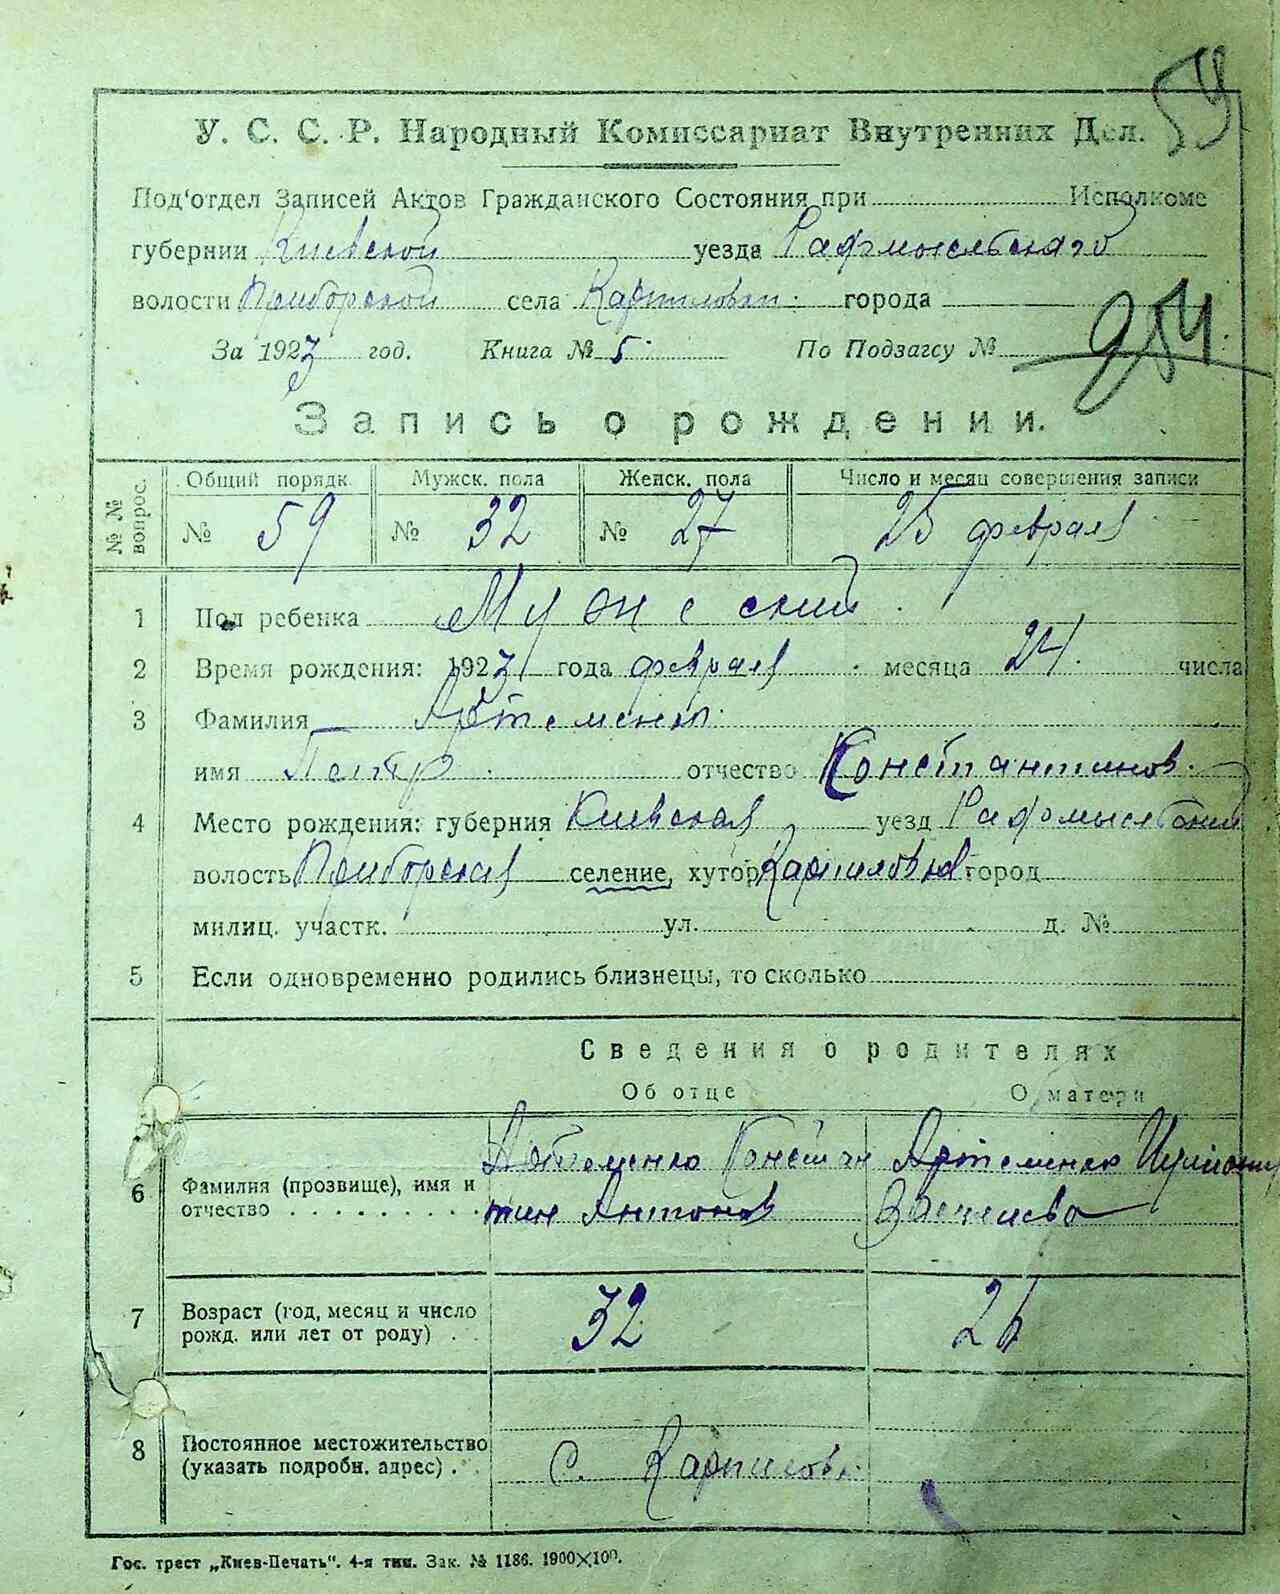 54
У. С. С. Р. Народный Комиссариат Внутренних Дел.
Под'отдел Записей Актов Гражданского Состояния при Исполкоме
губернии Киевской уезда Радомысльского
волости Приборской села Карпиловки города
За 1923 год. Книга № 5. По Подзагсу № 254
Запись о рождении.
№ № вопрос. Общий порядк. Мужск. пола Женск. пола Число и месяц совершения записи
№ 59 № 32 № 27 25 февраля
1 Пол ребенка Мужеский
2 Время рождения: 1923 года февраля месяца 24 числа
3 Фамилия Артеменко
имя Петр отчество Константинов.
4 Место рождения: губерния Киевская уезд Радомысльский
волость Приборская селение, хутор Карпиловка город
милиц. участк. ул. д. №
5 Если одновременно родились близнецы, то сколько
Сведения о родителях
Об отце О матери
6 Фамилия (прозвище), имя и Артеменко Констан Артеменко
отчество . . . . . . . . . . тин Антонов
7 Возраст (год, месяц и число 32 26
рожд. или лет от роду) . .
8 Постоянное местожительство
(указать подробн. адрес) . . С. Карпиловк.
Гос. трест „Киев-Печать". 4-я тип. Зак. № 1186. 1900×100.